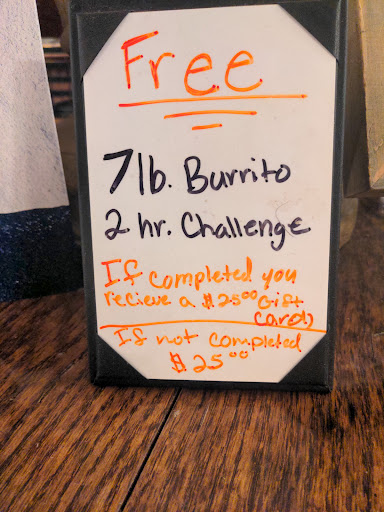 Free
7lb. Burrito
2 hr. Challenge
If completed you
recieve a $25⁰⁰ Gift
Card)
If not completed
$25⁰⁰